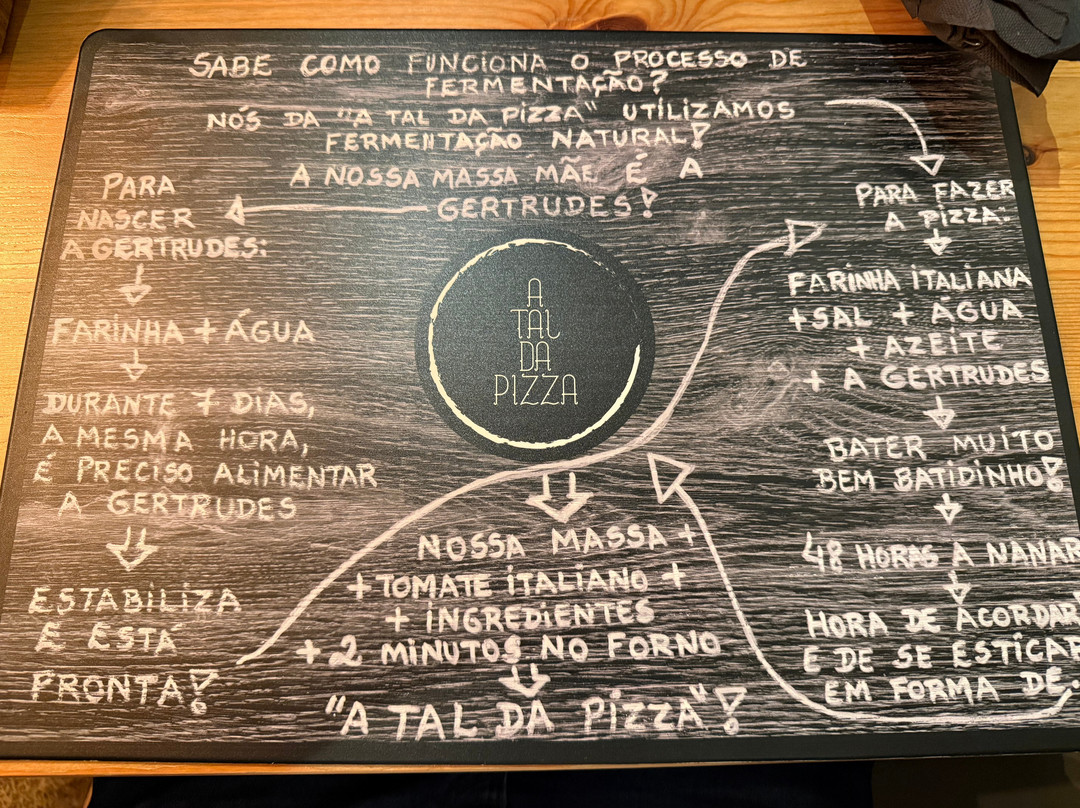 SABE COMO FUNCIONA O PROCESSO DE
FERMENTAÇÃO?
NÓS DA "A TAL DA PIZZA" UTILIZAMOS
FERMENTAÇÃO NATURAL!
A NOSSA MASSA MÃE É A
GERTRUDES!
PARA
NASCER
A GERTRUDES:
FARINHA + ÁGUA
DURANTE 7 DIAS,
A MESMA HORA,
É PRECISO ALIMENTAR
A GERTRUDES
ESTABILIZA
E ESTÁ
PRONTA!
PARA FAZER
A PIZZA:
FARINHA ITALIANA
+ SAL + ÁGUA
+ AZEITE
+ A GERTRUDES
BATER MUITO
BEM BATIDINHO!
48 HORAS A NANAR
HORA DE ACORDAR
E DE SE ESTICAR
EM FORMA DE...
A
TAL
DA
PIZZA
NOSSA MASSA +
+ TOMATE ITALIANO +
+ INGREDIENTES
+ 2 MINUTOS NO FORNO
"A TAL DA PIZZA"!